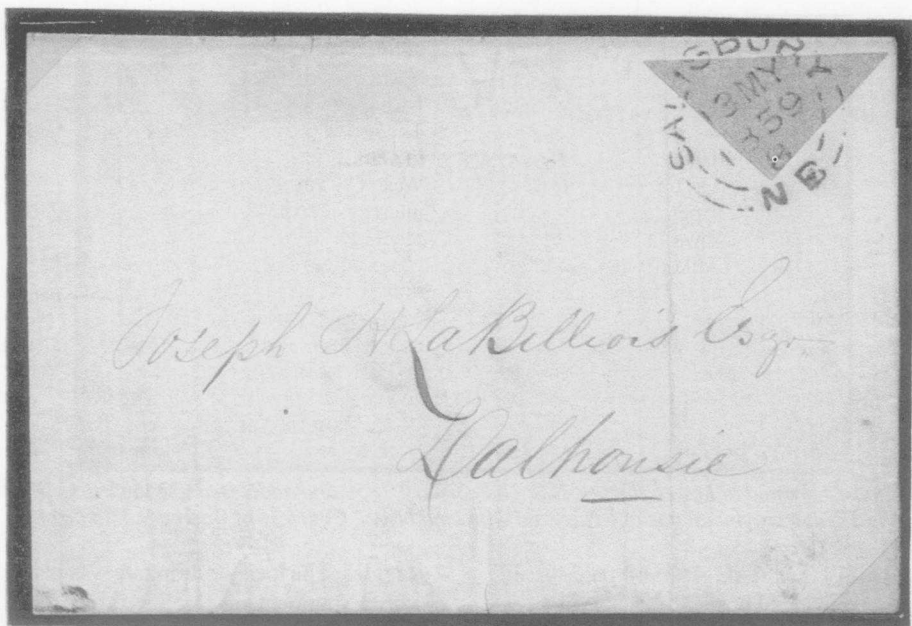 SALISBURY
3 MY
1859
N B
Joseph H LaBillois Esqr
Dalhousie